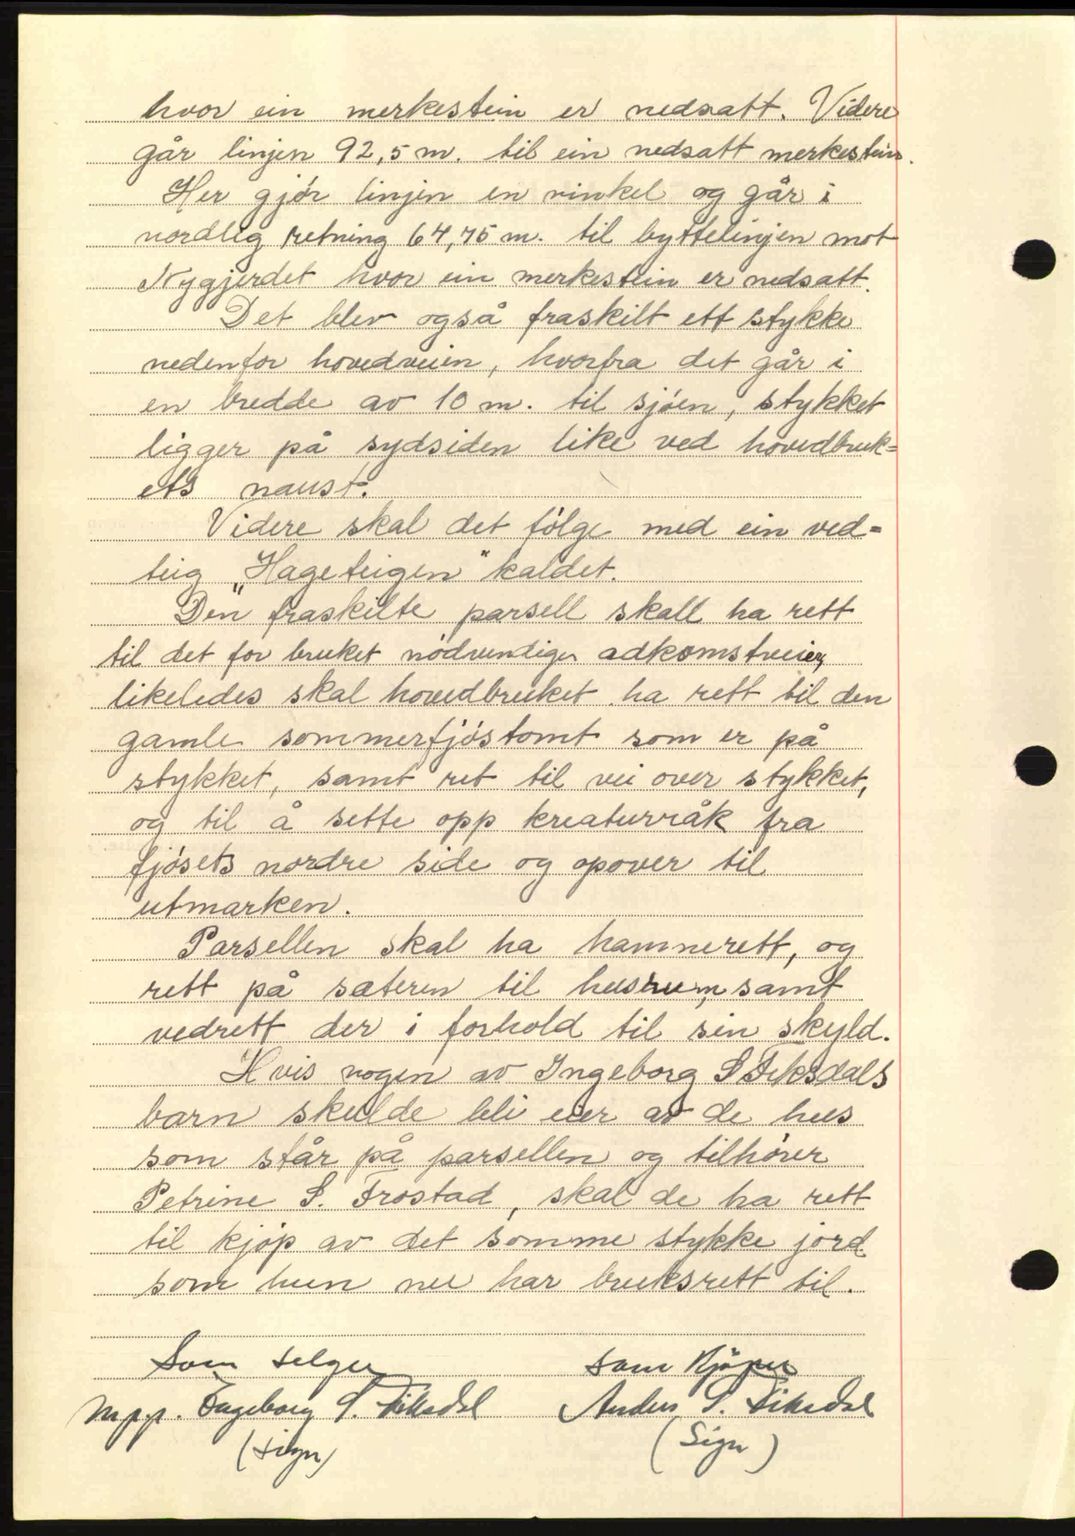 hvor ein merkestein er nedsatt. Videre
går linjen 92,5 m. til ein nedsatt merkestein.
Her gjör linjen en vinkel og går i
nordlig retning 64,75 m. til byttelinjen mot
Nygjerdet hvor ein merkestein er nedsatt.
Det blev også fraskilt ett stykke
nedenfor hovedveien, hvorfra det går i
en bredde av 10 m. til sjöen, stykket
ligger på sydsiden like ved hovedbruk=
ets naust.
Videre skal det fölge med ein ved=
teig "Hageteigen" kaldet.
Den fraskilte parsell skall ha rett
til det for bruket nödvendige adkomstveier,
likeledes skal hovedbruket ha rett til den
gamle sommerfjöstomt som er på
stykket, samt ret til vei over stykket,
og til å sette opp kreaturråk fra
fjösets nordre side og opover til
utmarken.
Parsellen skal ha hamnerett, og
rett på sæteren til husrum, samt
vedrett der i forhold til sin skyld.
Hvis nogen av Ingeborg S Fiksdals
barn skulde bli eier av de hus
som står på parsellen og tilhörer
Petrine S. Frostad, skal de ha rett
til kjöp av det somme stykke jord
som hun nu har bruksrett til.
Som selger som Kjöper
mpp. Ingeborg S. Fiksdal Anders S. Fiksdal
(sign) (Sign)